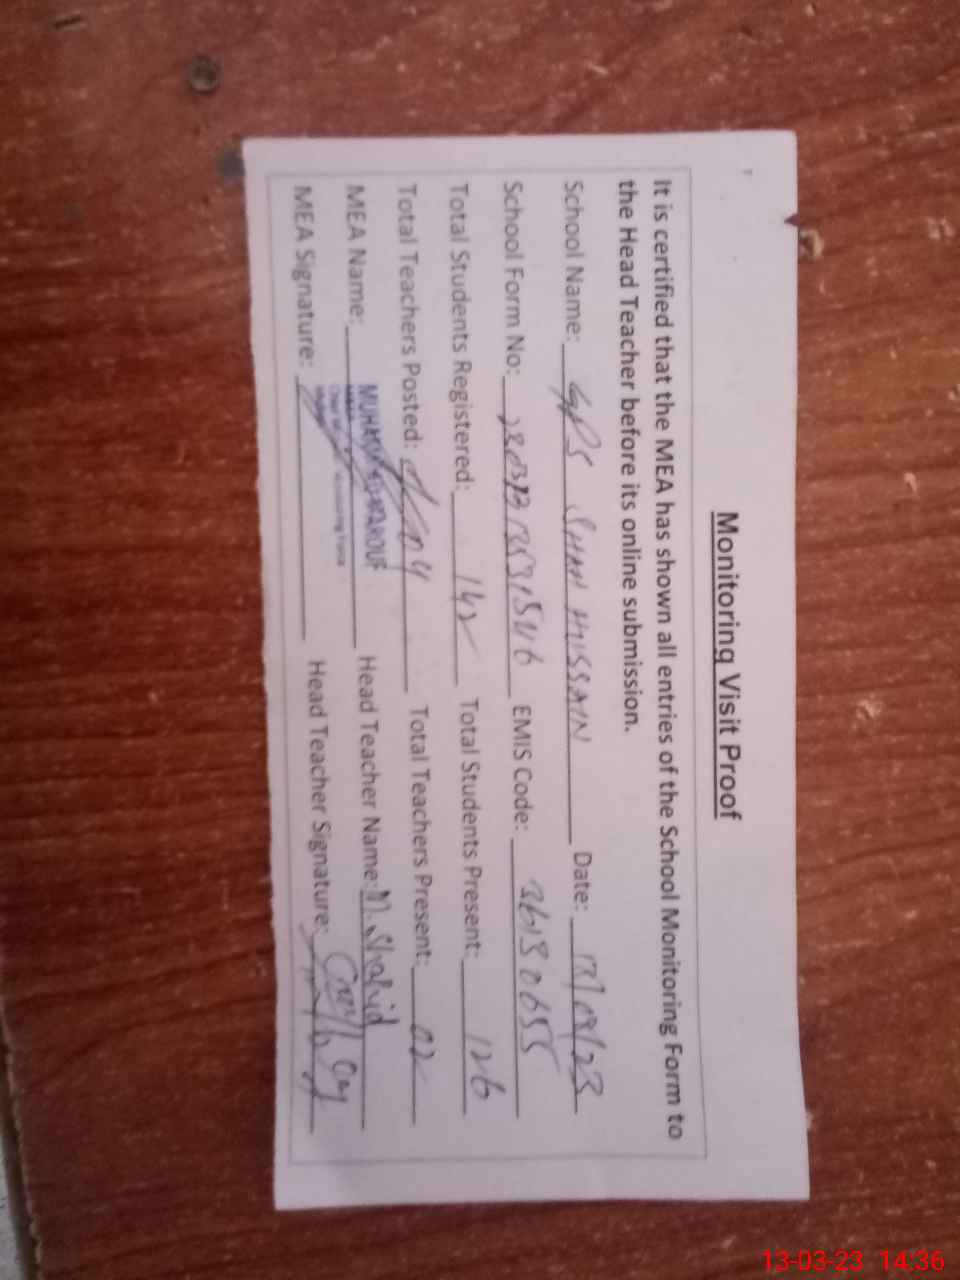 Monitoring Visit Proof
It is certified that the MEA has shown all entries of the School Monitoring Form to
the Head Teacher before its online submission.
School Name: GPS SHAH HUSSAIN Date: 13/03/23
School Form No: EMIS Code: 36130655
Total Students Registered: 142 Total Students Present: 126
Total Teachers Posted: 04 Total Teachers Present: 02
MEA Name: MUHAMMAD Head Teacher Name: M. Shahid
MEA Signature: Head Teacher Signature:
13-03-23 14:36